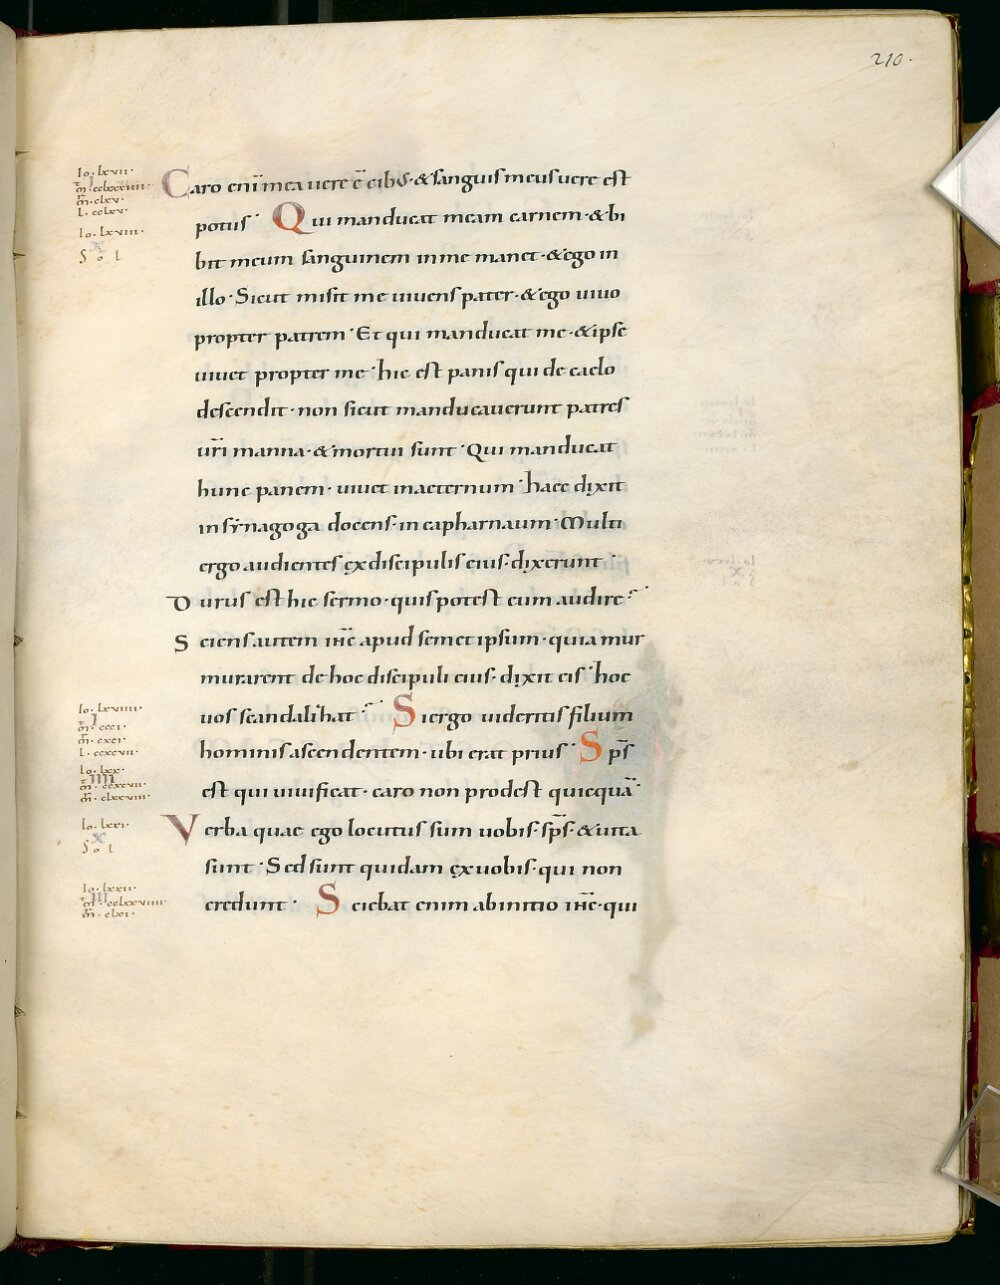 210.
Io. lxvii.
I
M. cclxxxiiii.
M. clxv.
L. cclxv.
Io. lxviii.
X
Sol
Caro eni mea uere ē cibus· & sanguis meus uere est
potus· Qui manducat meam carnem· & bi
bit meum sanguinem in me manet· & ego in
illo· Sicut misit me uiuens pater· & ego uiuo
propter patrem· Et qui manducat me· & ipse
uiuet propter me· hic est panis qui de caelo
descendit· non sicut manducauerunt patres
uri manna· & mortui sunt· Qui manducat
hunc panem· uiuet in aeternum· haec dixit
in synagoga docens· in capharnaum· Multi
ergo audientes ex discipulis eius· dixerunt·
Durus est hic sermo· quis potest eum audire·
Sciens autem ihc apud semet ipsum· quia mur
murarent de hoc discipuli eius· dixit eis· hoc
uos scandalihat· Si ergo uideritis filium
hominis ascendentem· ubi erat prius· Sps
est qui uiuificat· caro non prodest quicquā·
Verba quae ego locutus sum uobis· sps· & uita
sunt· Sed sunt quidam ex uobis· qui non
credunt· Sciebat enim ab initio ihc· qui
Io. lxviiii.
I
M. ccci.
M. cxci.
Io. lxx.
IIII
M. clxxviii.
Io. lxxi.
X
Sol
Io. lxxii.
III